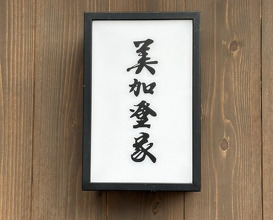 美加登家